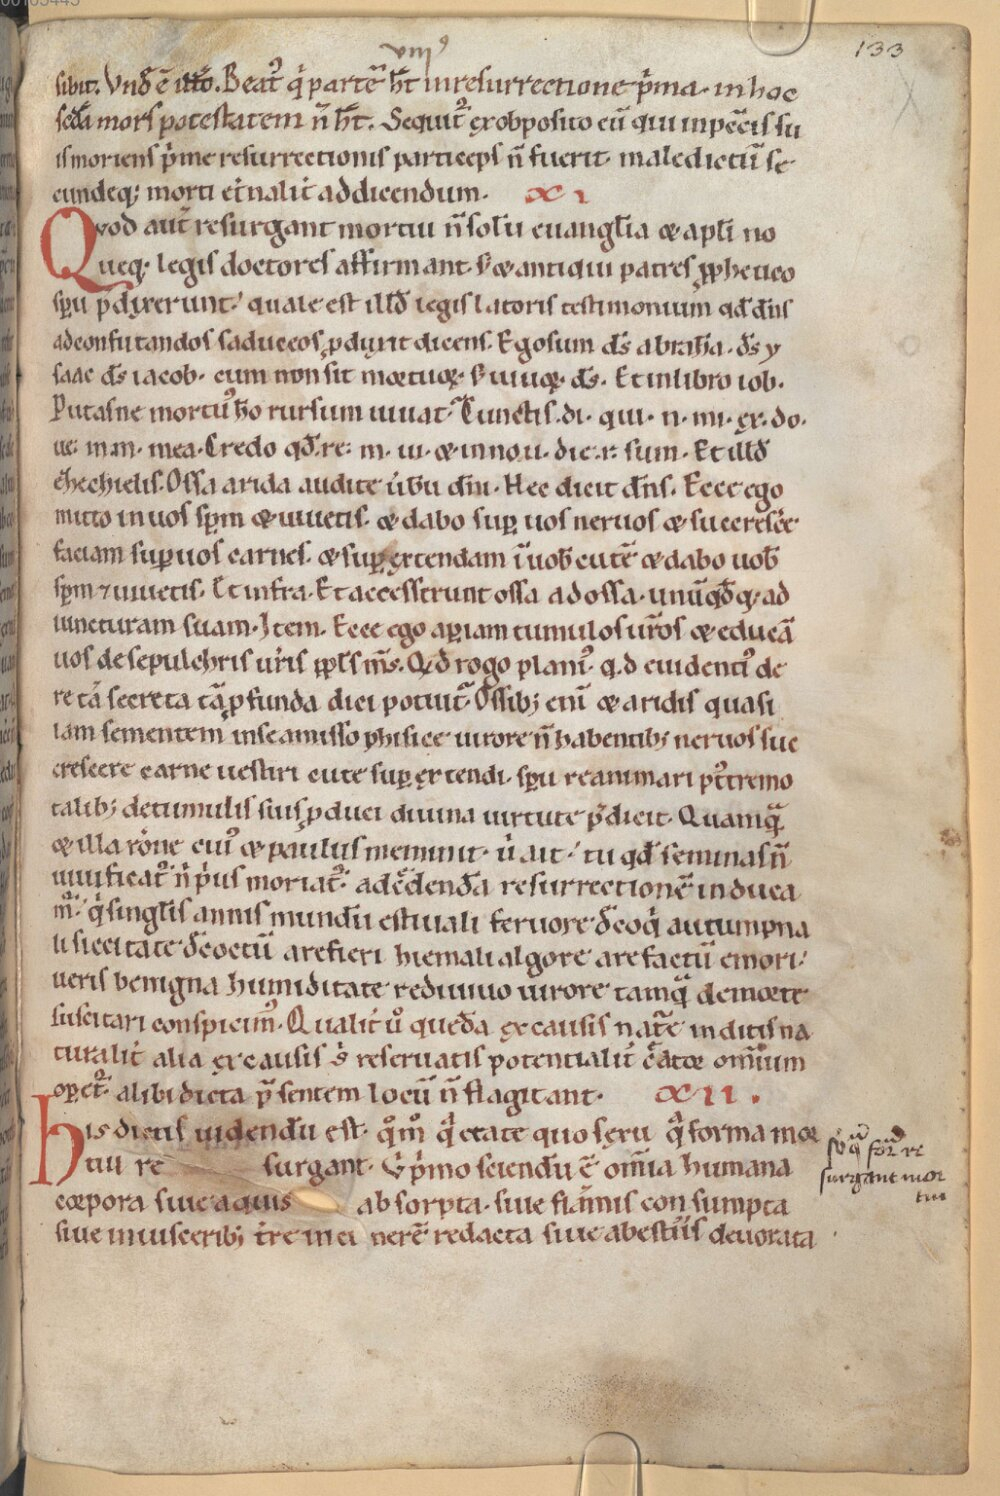 133
viiiꝰ
sibit. Vnđ ē illđ. Beatꝰ q̇ partē ħt in resurrectione p̍ma. in hoc
secđa mors potestatem n̄ ħt. Sequit᷑ ex obposito eū qui in pec̄cis su
is moriens p̍me resurrectionis particeps n̄ fuerit. maledictū se
cundeq; morti et̍nalit̍ addicendum. XI
Qvod aut̄ resurgant mortui n̄ solū euangl̄ia & apl̄i no
ueq. legis doctores affirmant. S; & antiqui patres ꝓphetico
sp̄u p̄dixerunt. quale est illđ legis latoris testimonium qđ dn̄s
ad confutandos saduceos ꝓduxit dicens. Ego sum ds̄ abrahā. ds̄ y
saac ds̄ iacob. cum non sit mortuoꝝ. S; uiuoꝝ ds̄. Et in libro iob.
Putasne mortuꝰ ho rursum uiuat. Cunctis. di. qui. n. mi. ex. do.
ue. im. mea. Credo qđ. re. m. ui. & in no. u. die. r. sum. Et illđ
ezechielis. Ossa arida audite u̍bū dn̄i. Hec dicit dn̄s. Ecce ego
mitto in uos spm̄ & uiuetis. & dabo suꝑ uos neruos & succrescē
faciam super uos carnes. & suꝑ extendam ī uob̄ cutē & dabo uob̄
spm̄ ⁊ uiuetis. Et infra. Et accesserunt ossa ad ossa. unū qđq; ad
iuncturam suam. Item. Ecce ego aꝑiam tumulos ur̄os & educā
uos de sepulchris ur̄is ppl̄s m̄s. Qđ rogo planiꝰ. q̄d euidentiꝰ de
re tā secreta tā ꝓfunda dici potuit. Ossib; eni & aridis quasi
iam sementem in se amisso phisice uirore n̄ habentib; neruos suc
crescere carne uestiri cute suꝑ extendi. sp̄u reanimari pꝰtremo
talib; de tumulis suis ꝓduci diuina uirtute p̄dicit. Quamq̄
& illa rōne cuiꝰ & paulus meminit. u̍ ait. tu qđ seminas n̄
uiuificat᷑ n̍ p̍us moriat᷑. ad c̄dendā resurrectionē induca
m᷑. q̇ singl̄is annis mundū estiuali feruore đcoq̇ autumpna
li siccitate đcoctū arefieri hiemali algore arefactū emori.
ueris benigna humiditate rediuiuo uirore tamq̄ de morte
suscitari conspicimꝰ. Qualit̍ u̍o quedā ex causis natē inditis na
turalit̍ alia ex causis s̍ reseruatis potentialit̍ c̄atoꝝ omīum
oꝑet᷑ alibi dicta p̄sentem locū n̄ flagitant. XII.
His dictis uidendū est. qm̊ q̇ etate quo sexu q̇ forma mor
tui re surgant. S; p̍mo sciendū ē omīa humana
corpora siue aquis absorpta. siue flammis consumpta
siue in uiscerib; t̍re in ci nerē redacta siue a bestiis deuorata
surgant mor
tui